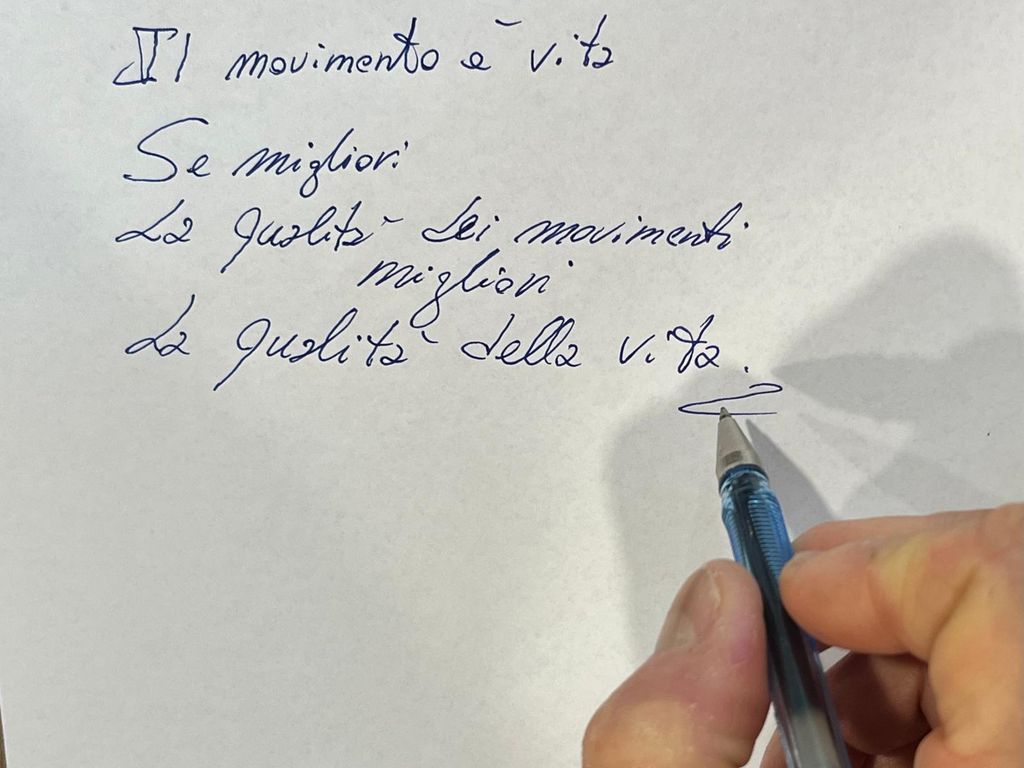 Il movimento è vita
Se migliori
La qualità dei movimenti
migliori
La qualità della vita.